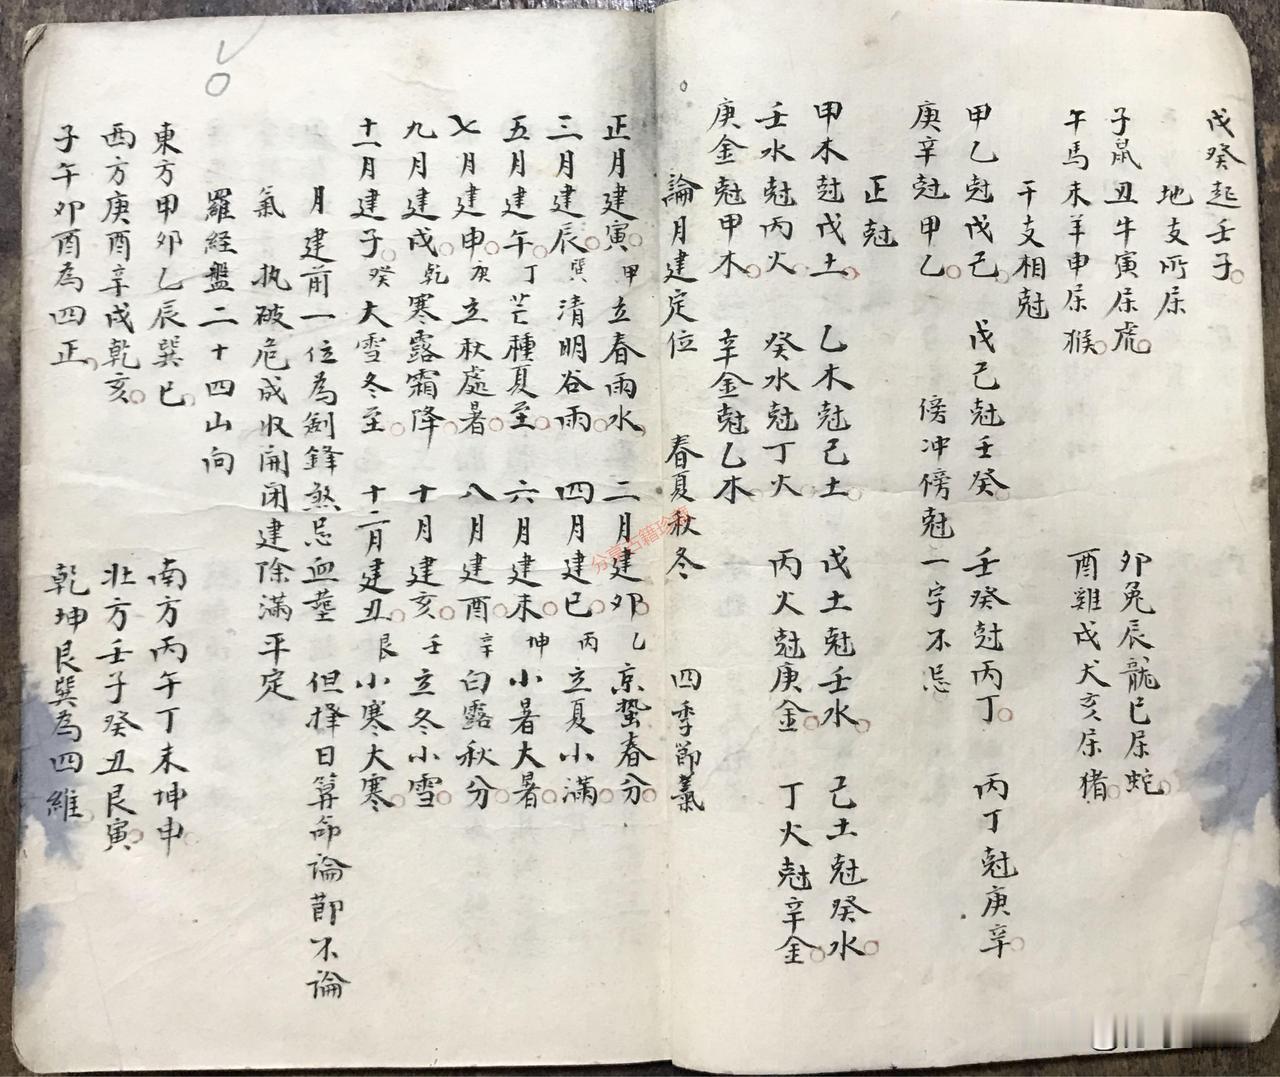 戊癸起壬子
地支所属
子鼠丑牛寅属虎 卯兔辰龍巳属蛇
午馬未羊申属猴 酉雞戌犬亥属猪
干支相尅
甲乙尅戊己 戊己尅壬癸 壬癸尅丙丁 丙丁尅庚辛
庚辛尅甲乙 傍冲傍尅一字不忌
正尅
甲木尅戊土 乙木尅己土 戊土尅壬水 己土尅癸水
壬水尅丙火 癸水尅丁火 丙火尅庚金 丁火尅辛金
庚金尅甲木 辛金尅乙木
論月建定位 春夏秋冬 四季節氣
正月建寅甲立春雨水 二月建卯乙京蟄春分
三月建辰巽清明谷雨 四月建巳丙立夏小滿
五月建午丁芒種夏至 六月建未坤小暑大暑
七月建申庚立秋處暑 八月建酉辛白露秋分
九月建戌乾寒露霜降 十月建亥壬立冬小雪
十一月建子癸大雪冬至 十二月建丑艮小寒大寒
月建前一位為劍鋒煞忌血塟 但择日算命論節不論
氣 执破危成收開闭建除滿平定
羅經盤二十四山向
東方甲卯乙辰巽巳 南方丙午丁未坤申
西方庚酉辛戌乾亥 北方壬子癸丑艮寅
子午卯酉為四正 乾坤艮巽為四維
分享古籍珍